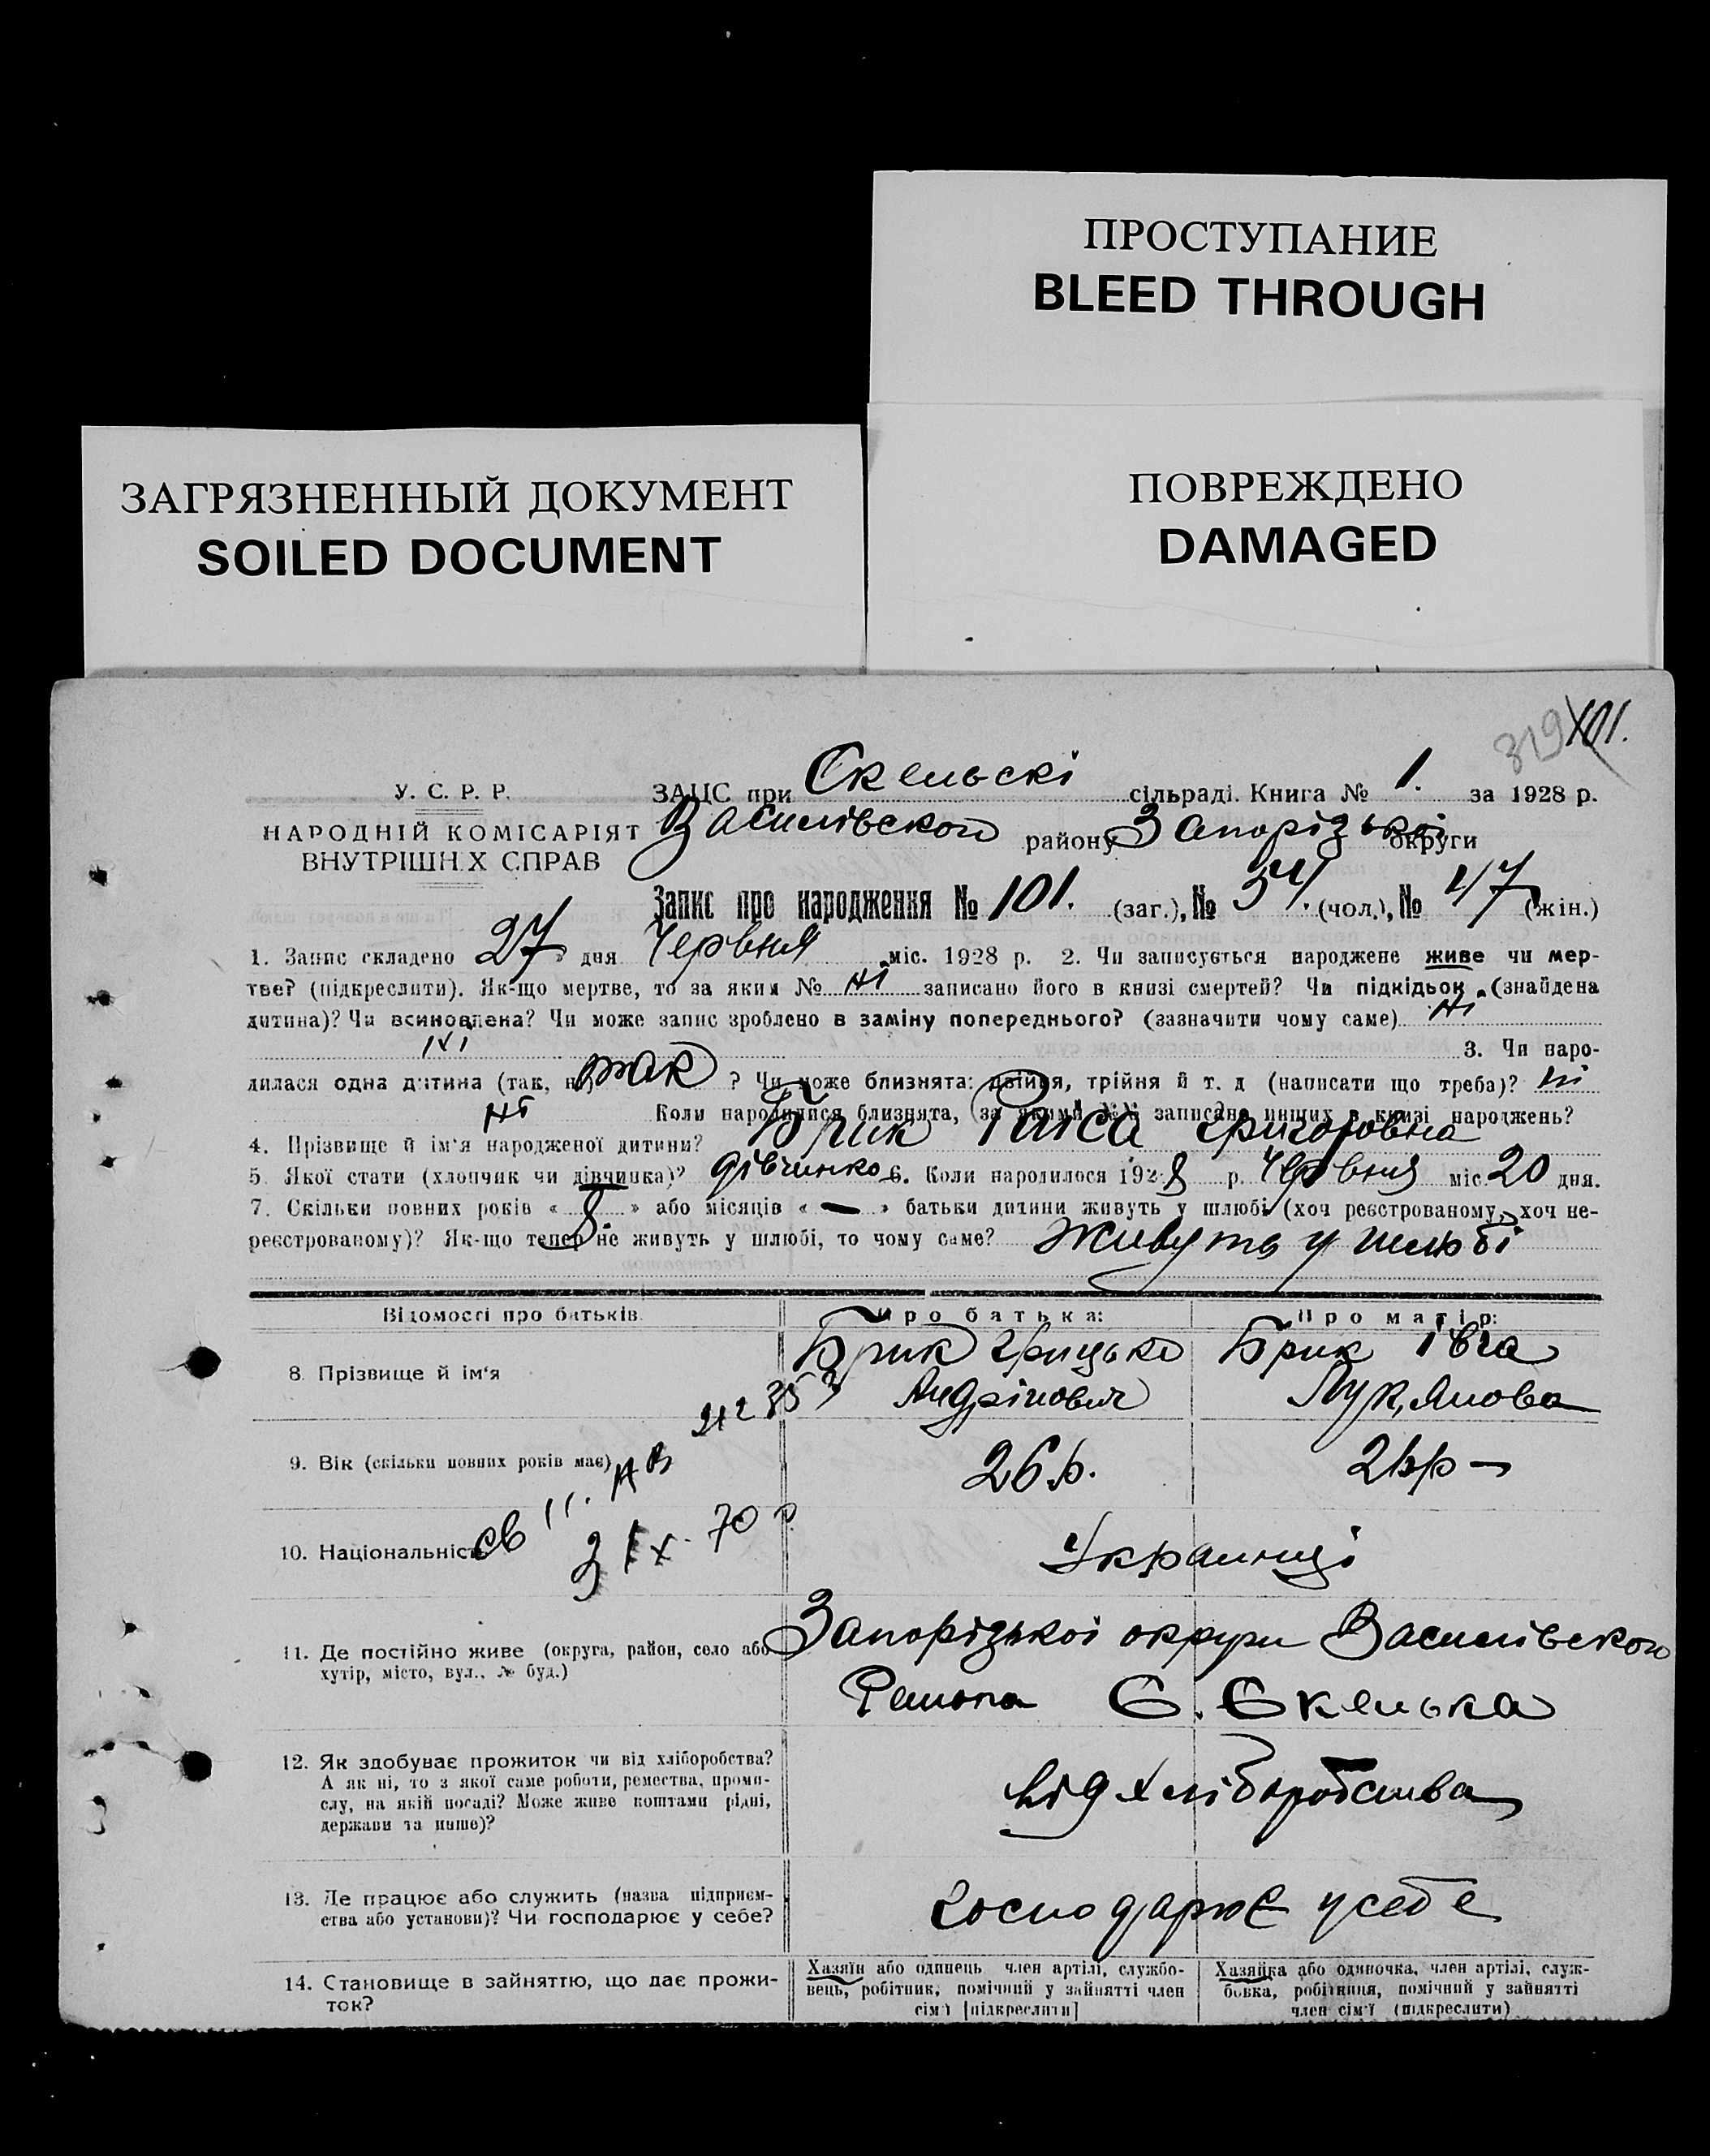 ПРОСТУПАНИЕ
BLEED THROUGH
ЗАГРЯЗНЕННЫЙ ДОКУМЕНТ
SOILED DOCUMENT
ПОВРЕЖДЕНО
DAMAGED
319 101.
У. С. Р. Р.
НАРОДНІЙ КОМІСАРІЯТ
ВНУТРІШН Х СПРАВ
ЗАЦС при Скельскі сільраді. Книга № 1. за 1928 р.
Василівской району Запорізької округи
Запис про народження № 101. (заг.), № 54. (чол.), № 47 (жін.)
1. Запис складено 27 дня Червня міс. 1928 р. 2. Чи записується народжене живе чи мер-
тве? (підкреслити). Як-що мертве, то за яким № ні записано його в книзі смертей? Чи підкідьок (знайдена
дитина)? Чи всиновлена? Чи може запис зроблено в заміну попереднього? (зазначити чому саме) ні
ні 3. Чи наро-
дилася одна дитина (так, ні) так ? Чи може близнята: двійня, трійня й т. д (написати що треба)? ні
ні Коли народилися близнята, (за якими №№ записано инших в книзі народжень?
4. Прізвище й ім'я народженої дитини? Брик Раіса Григоровна
5 Якої статі (хлопчик чи дівчинка)? дівчинко 6. Коли народилося 1928 р. Червня міс. 20 дня.
7. Скільки повних років « 8. » або місяців « — » батьки дитини живуть у шлюбі (хоч реєстрованому, хоч не-
реєстрованому)? Як-що тепер не живуть у шлюбі, то чому саме? Живуть у шлюбі
Відомості про батьків Про батька: Про матір:
8. Прізвище й ім'я Брик Грицько Брик Івга
Андрінович Лук,янова
9. Вік (скільки повних років має) 26 р.
10. Національність Украинці
св 11. АВ
IX 70 р
11. Де постійно живе (округа, район, село або Запорізької округи Василівского
хутір, місто, вул., № буд.) С. Скелька
12. Як здобуває прожиток чи від хліборобства?
А як ні, то з якої саме роботи, ремества, проми-
слу, на якій посаді? Може живе коштами рідні,
держави та инше)?
від хліборобства
13. Де працює або служить (назва підприєм-
ства або установи)? Чи господарює у себе?
господарює у себе
14. Становище в зайняттю, що дає прожи-
ток?
Хазяїн або одинець член артілі, службо-
вець, робітник, помічний у зайнятті член
сім'ї [підкреслити]
Хазяйка або одиночка, член артілі, служ-
бовка, робітниця, помічний у зайнятті
член сім'ї (підкреслити)